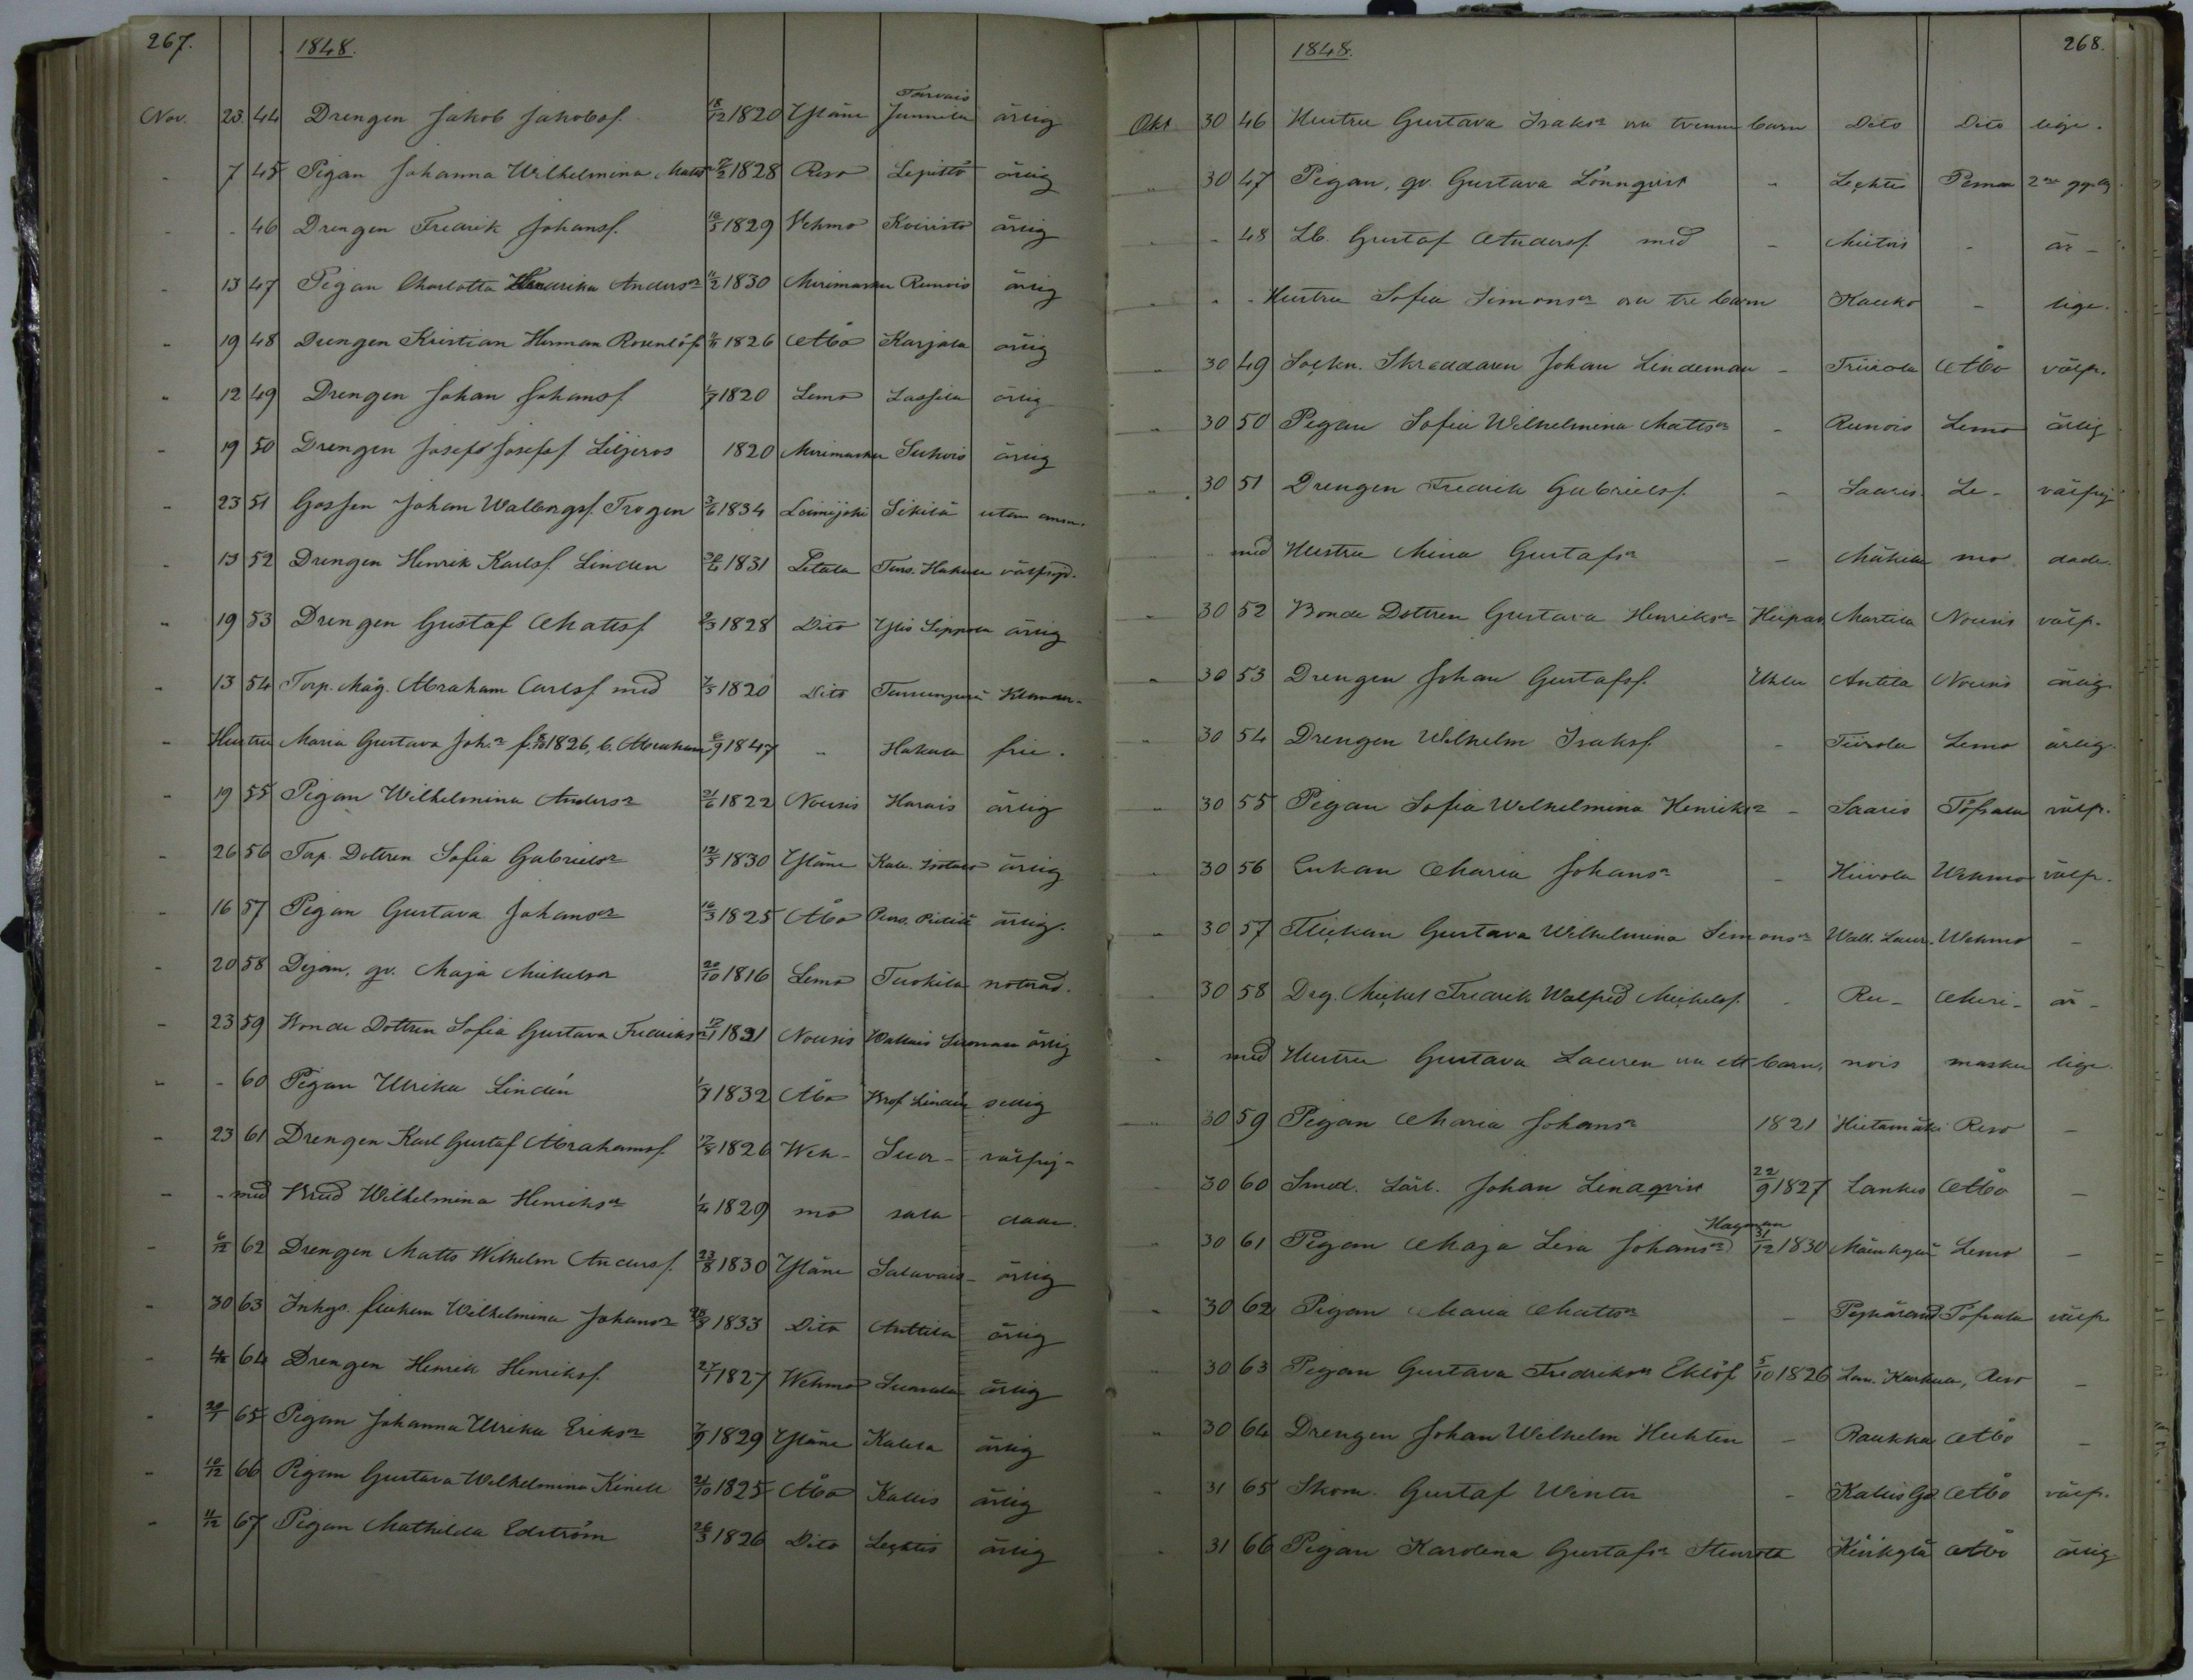 267.
1848.
Nov. 23 44 Drengen Jakob Jakobsf. 18/12 1820 Yläne Tarvais Junnila ärlig
- 7 45 Pigan Johanna Wilhelmina Matts 1828 Reso Lepistö ärlig
- - 46 Drengen Fredrik Johansf. 1829 Vehmo Koivisto ärlig
- 13 47 Pigan Charlotta Henrika Andersr 11/2 1830 Merimasku Runois ärlig
- 19 48 Drengen Kristian Herman Rosenlöf 1826 Åbo Karjala ärlig
- 12 49 Drengen Johan Johansf 1820 Lemo Lassila ärlig
- 19 50 Drengen Josef Josefsf Liljeros 1820 Merimasku ärlig
- 23 51 Gossen Johan Wallengsf. Trogen 3/6 1834 Loimijoki Sikilä utan anm.
- 13 52 Drengen Henrik Karlsf. Linden 1831 Letala Hakula välfrejd.
- 19 53 Drengen Gustaf Matsf 1828 Dito Ylis Seppälä ärlig
- 13 54 Torp. Måg. Abraham Carlsf med 1820 Dito
- Hustru Maria Gustava Joh.r f. 1826, b. Abraham 1847 " Hakula frie.
- 19 55 Pigan Wilhelmina Andersr 21/6 1822 Nousis Harais ärlig
- 26 56 Torp. Dottren Sofia Gabrielsr 12/5 1830 Yläne Kala. Isotalo ärlig
- 16 57 Pigan Gustava Johansr 16/3 1825 Åbo ärlig.
- 20 58 Dejan, gv. Maja Mickelsr 20/10 1816 Lemo Tuokila noterad.
- 23 59 Bonde Dottren Sofia Gustava Fredriksr 1831 Nousis ärlig
- - 60 Pigan Ulrika Lindén 1/7 1832 Åbo Prof. Lindén sedlig
- 23 61 Drengen Karl Gustaf Abrahamsf. 1826 Weh- Suor- välfrej-
- - med Brud Wilhelmina Henriksr 1829 mo sala dade.
- 6/12 62 Drengen Matts Wilhelm Andersf. 23/8 1830 Yläne Salavais ärlig
- 30 63 Inhys. flickan Wilhelmina Johansr 1833 Dito Anttila ärlig
- 4/12 64 Drengen Henrik Henriksf. 27/1 1827 Wehmo ärlig
- 65 Pigan Johanna Ulrika Eriksr 1829 Yläne Kalela ärlig
- 10/12 66 Pigan Gustava Wilhelmina Kinell 21/10 1825 Åbo Kallis ärlig
- 11/12 67 Pigan Mathilda Edström 26/3 1826 Dito Lechtis ärlig
1848.
268.
Okt 30 46 Hustru Gustava Isaksr o. tvenne barn Dito Dito lige.
" 30 47 Pigan, gv. Gustava Lönnqvist - Lechtis Pemar
- - 48 Lb. Gustaf Andersf. med - Mietois - är-
- - - Hustru Sofia Simonsr o. tre barn Kauko - lige.
" 30 49 Sockn. Skräddaren Johan Lindeman - Tiirola Åbo välfr.
" 30 50 Pigan Sofia Wilhelmina Mattsr - Runois Lemo ärlig
" 30 51 Drengen Fredrik Gabrielsf. - Saaris Le- välfrej
" med Hustru Mina Gustafsr - Mäkilä mo dade.
- 30 52 Bonde Dottren Gustava Henriksr Martila Nousis välfr.
- 30 53 Drengen Johan Gustafsf. Antila Nousis ärlig.
" 30 54 Drengen Wilhelm Isaksf. - Tiirola Lemo ärlig.
" 30 55 Pigan Sofia Wilhelmina Henriksr - Saaris Töfsala välfr.
- 30 56 Enkan Maria Johansr - Hiivola Wehmo välfr.
- 30 57 Flickan Gustava Wilhelmina Simonsr Wall. Laur. Wehmo -
- 30 58 Drg. Mickel Fredrik Walfrid Mickelsf. - Ru- Meri- är-
- med Hustru Gustava Lauren o. ett barn, nois masku lige.
" 30 59 Pigan Maria Johansr 1821 Hietamäki Reso -
30 60 Smed. Lärl. Johan Lindqvist 22/9 1827 Lankis Åbo -
- 30 61 Pigan Maja Lisa Johansr Hagman 31/12 1830 Mäenkylä Lemo -
" 30 62 Pigan Maria Mattsr - Töfsala välfr.
30 63 Pigan Gustava Fredriksr Eklöf 5/10 1826 Lem. Kurkula, Reso -
" 30 64 Drengen Johan Wilhelm Huhtin - Raukka Åbo -
" 31 65 Skom. Gustaf Winter - Kallis Gd Åbo välfr.
" 31 66 Pigan Karolina Gustafsr Stenroth Kiikylä Åbo ärlig